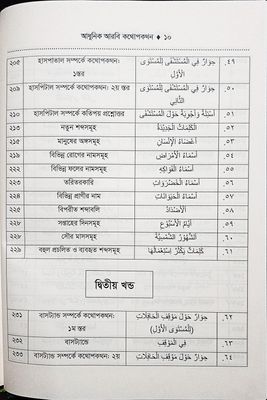 আধুনিক আরবি কথোপকথন ◆ ১০
২০৫ হাসপাতাল সম্পর্কে কথোপকথন: ১স্তর حِوَارٌ فِي الْمُسْتَشْفَى لِلْمُسْتَوَى الْأَوَّلِ .٤٩
২০৯ হাসপিটাল সম্পর্কে কথোপকথন: ২য় স্তর حِوَارٌ فِي الْمُسْتَشْفَى لِلْمُسْتَوَى الثَّانِي .٥٠
২১০ হাসপিটাল সম্পর্কে কতিপয় প্রশ্নোত্তর أَسْئِلَةٌ وَأَجْوِبَةٌ حَوْلَ الْمُسْتَشْفَى .٥١
২১৩ নতুন শব্দসমূহ الْكَلِمَاتُ الْجَدِيْدَةُ .٥٢
২১৫ মানুষের অঙ্গসমূহ أَعْضَاءُ الْإِنْسَانِ .٥٣
২১৯ বিভিন্ন রোগের নামসমূহ أَسْمَاءُ الْأَمْرَاضِ .٥٤
২২২ বিভিন্ন ফলের নামসমূহ أَسْمَاءُ الْفَوَاكِهِ .٥٥
২২৩ তরিতরকারি أَسْمَاءُ الْخُضْرَوَاتِ .٥٦
২২৪ বিভিন্ন প্রাণীর নাম أَسْمَاءُ الْحَيَوَانَاتِ .٥٧
২২৫ বিপরীত শব্দাবলি الْأَضْدَادُ .٥٨
২২৮ সপ্তাহের দিনসমূহ أَيَّامُ الْأُسْبُوْعِ .٥٩
২২৮ সৌর মাসসমূহ الشُّهُوْرُ الشَّمْسِيَّةُ .٦٠
২২৯ বহুল প্রচলিত ও ব্যবহৃত শব্দসমূহ كَلِمَاتٌ يَكْثُرُ اسْتِعْمَالُهَا .٦١
দ্বিতীয় খন্ড
২৩১ বাসস্ট্যান্ড সম্পর্কে কথোপকথন: ১ম স্তর حِوَارٌ حَوْلَ مَوْقِفِ الْحَافِلَاتِ (لِلْمُسْتَوَى الْأَوَّلِ) .٦٢
২৩৩ বাসস্ট্যান্ডে فِي الْمَوْقِفِ .٦٣
২৩৩ বাসস্ট্যান্ড সম্পর্কে কথোপকথন: ২য় حِوَارٌ حَوْلَ مَوْقِفِ الْحَافِلَاتِ .٦٤